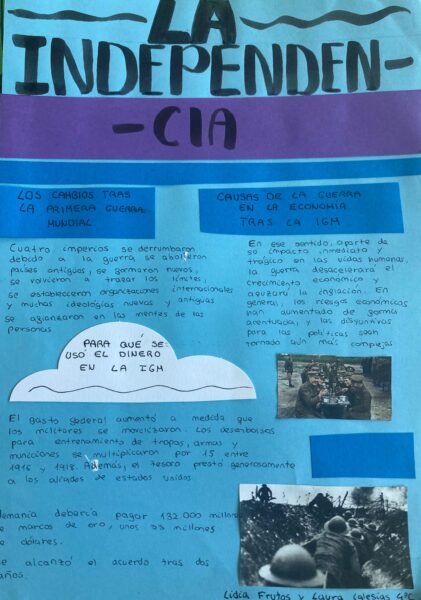 LA
INDEPENDEN-
-CIA
LOS CAMBIOS TRAS
LA PRIMERA GUERRA
MUNDIAL
Cuatro imperios se derrumbaron
debido a la guerra se abolieron
países antiguos, se formaron nuevos,
se volvieron a trazar los límites,
se establecieron organizaciones internacionales
y muchas ideologías nuevas y antiguas
se afianzaron en las mentes de las
personas
CAUSAS DE LA GUERRA
EN LA ECONOMÍA
TRAS LA IGM
En ese sentido, aparte de
su impacto inmediato y
trágico en las vidas humanas,
la guerra desacelerará el
crecimiento económico y
acelerará la inflación. En
general, los riesgos económicos
han aumentado de forma
acentuada, y las disyuntivas
para las políticas sean
tornado aún más complejas
PARA QUÉ SE
USÓ EL DINERO
EN LA IGM
El gasto federal aumentó a medida que
los militares se movilizaron. Los desembolsos
para entrenamiento de tropas, armas y
municiones se multiplicaron por 15 entre
1916 y 1918. Además, el tesoro prestó generosamente
a los aliados de estados unidos
lemania debería pagar 132.000 millone
e marcos de oro, unos 33 millones
e dólares.
e alcanzó el acuerdo tras dos
años.
Lidia Frutos y Laura Iglesias 4ºC